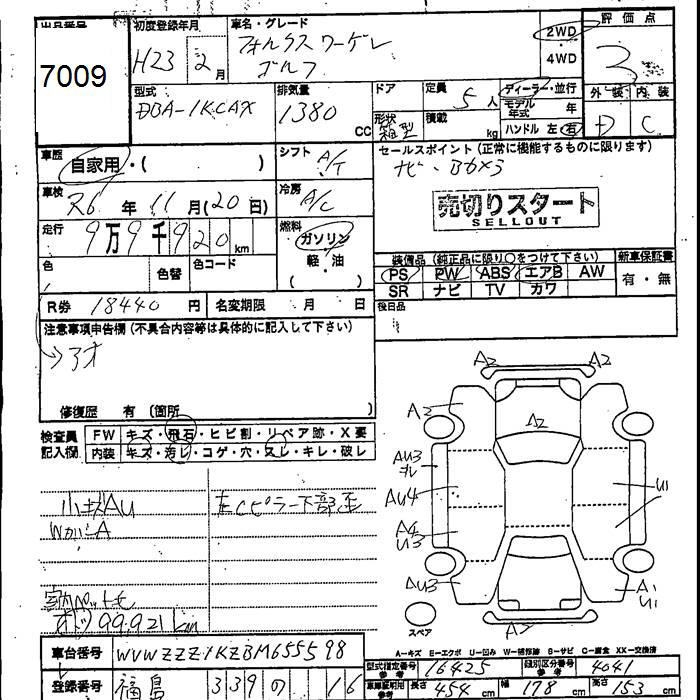 出品番号 初度登録年月 車名・グレード 評価点
7009 H23 2月 フォルクスワーゲン ゴルフ 2WD・4WD 3
型式 排気量 ドア 定員 ディーラー・並行 外装 内装
DBA-1KCAX 1380 CC 形状 箱型 5人 積載 kg モデル年式 年 ハンドル 左・右 D C
車歴 自家用・( ) シフト A/T セールスポイント(正常に機能するものに限ります)
車検 R6年11月(20日) 冷房 A/C ナビ・
売切りスタート
SELLOUT
走行 9万9千920km 燃料 ガソリン 軽・油 ( )
色 色替 色コード
装備品(純正品に限り○をつけて下さい) 新車保証書
PS PW ABS エアB AW 有・無
SR ナビ TV カワ
R券 18440円 名変期限 月 日 後日品
注意事項申告欄(不具合内容等は具体的に記入して下さい)
修復歴 有 (箇所 )
検査員記入欄 FW キズ・飛石・ヒビ割・リペア跡・X要
内装 キズ・汚レ・コゲ・穴・スレ・キレ・破レ
小キズAU 左Cピラー下部歪
WガラA
99921km
A2 A2
A2 A2
AU3
AU4 U1
A4
U3
AU3 A1
U1
A2
スペア
A-キズ E-エクボ U-凹み W-補修跡 S-サビ C-腐食 XX-交換済
車台番号 WVWZZZ1KZBM655598
型式指定番号 参考 16425 類別区分番号 参考 4041
登録番号 福島 339 の 16
車庫証明用 参考 長さ 454cm 幅 178cm 高さ 153cm